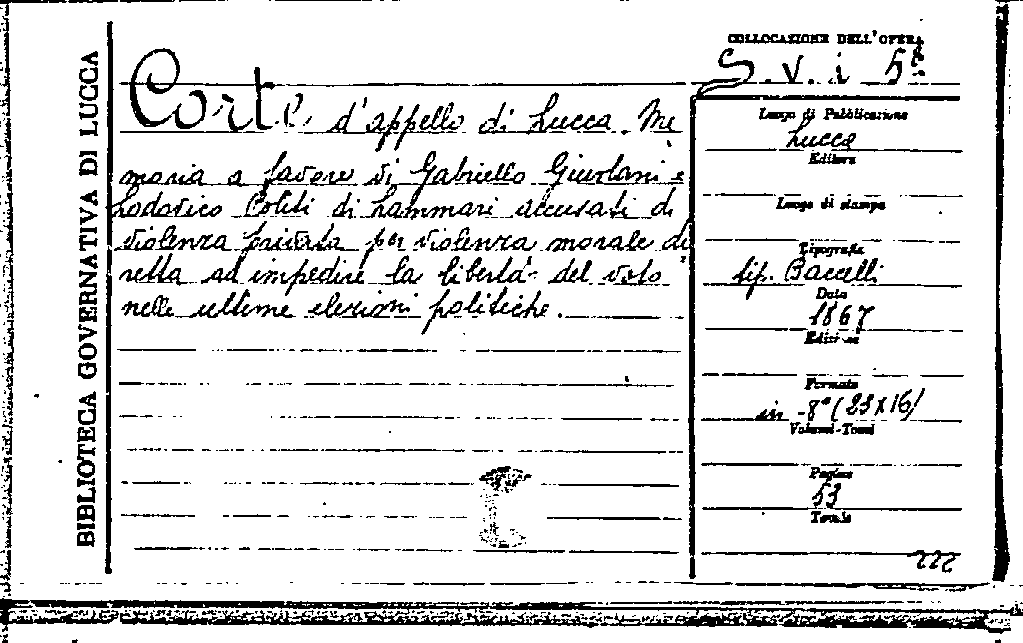 BIBLIOTECA GOVERNATIVA DI LUCCA
Corte d'appello di Lucca. Me
moria a favore di Gabriello Giurlani e
Lodovico Politi di Lammari accusati di
violenza privata per violenza morale di
retta ad impedire la libertà del voto
nelle ultime elezioni politiche.
COLLOCAZIONE DELL'OPERA
S. V. i
Luogo di Pubblicazione
Lucca
Editore
Luogo di stampa
Tipografia
tip. Baccelli
Data
1867
Edizione
Formato
in -8° (23X16)
Volumi-Tomi
Pagine
53
Tavole